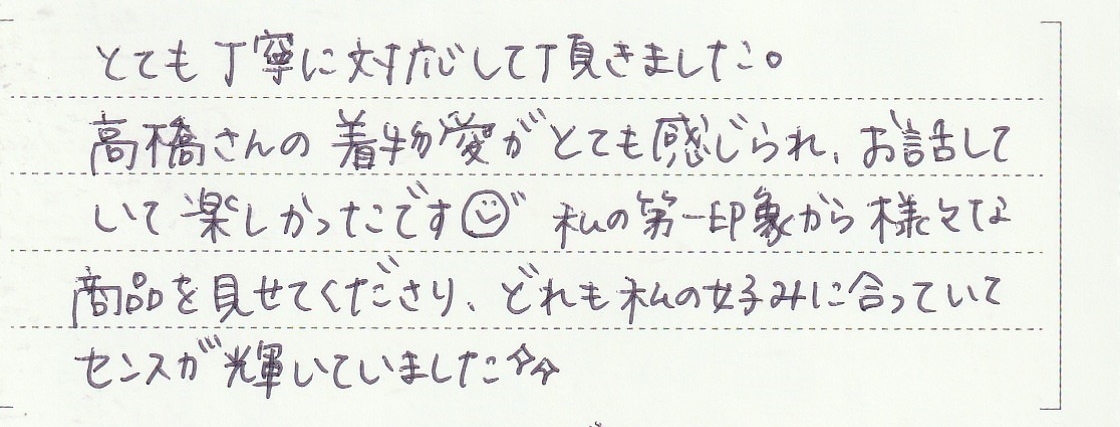 とても丁寧に対応して頂きました。
高橋さんの着物愛がとても感じられ、お話して
いて楽しかったです☺ 私の第一印象から様々な
商品を見せてくださり、どれも私の好みに合っていて
センスが輝いていました✧✧